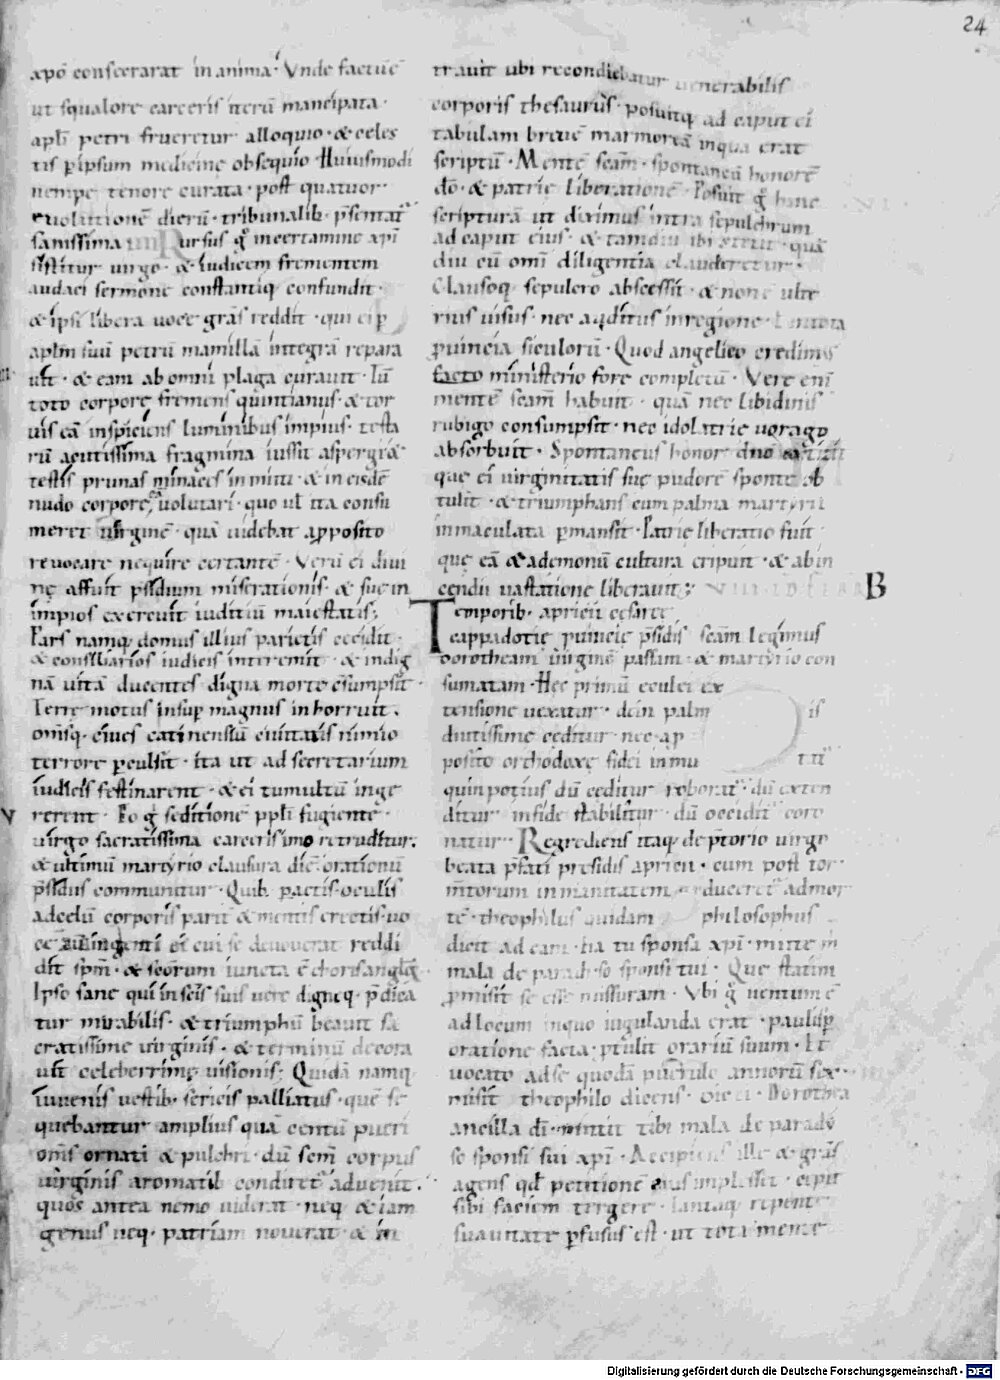 24
xpō consecrarat in anima · Vnde factūē
ut squalore carceris iterū mancipata ·
apłi petri frueretur alloquio · & celes
tis p ipsum medicine obsequio · Huiusmodi
nempe tenore curata · post quatuor ·
euolutionē dierū · tribunalib · p̄sentat᷑
sanissima Rursus g̊ in certamine xp̄i
sistitur uirgo · & iudicem frementem
audaci sermone constantiq; confundit ·
& ipsi libera uoce grās reddit · qui ei p
aplm suū petrū mamillā integrā repara
uit · & eam ab omni plaga curauit · Tū
toto corpore fremens quintianus · & tor
uis eā inspiciens luminibus impius · testa
rū acutissima fragmina iussit aspergi &
testis prunas minaces inmitti · & in eisdē
nudo corpore uolutari · quo ul ita consu
meret uirginē · quā uidebat a pposito
reuocare nequire certantē · Verū ei diui
nę affuit p̄sidium miserationis · & suę in
impios excreuit iuditiū maiestatis;
Pars namq; domus illius parietis cecidit ·
& consiliarios iudicis interemit · & indig
nā uitā ducentes digna morte c̄sumpsit ·
Terre motus insup magnus inhorruit ·
omīsq; ciues catinensiū ciuitatis nimio
terrore pculsit · ita ut ad secretarium
iudicis festinarent · & ei tumultū inge
rerent · Eo g̊ seditionē ppłi fugiente
uirgo sacratissima carceris imo retruditur.
& ultimū martyrio clausura diē orationū
p̄sidiis communitur · Quib pactis · oculis
ad celū corporis parit̄ & mentis erectis · uo
ce ingenti ei cui se deuouerat reddi
dit sp̄m · & sc̄orum iuncta ē choris anglȝ
Ipse sane qui in sc̄is suis uere digneq; p̄dica
tur mirabilis · & triumphū beauit sa
cratissime uirginis · & terminū decora
uit celeberrime uisionis; Quidā namq;
iuuenis uestib · sericis palliatus · quē se
quebantur amplius quā centū pueri
om̄s ornati & pulchri · dū sc̄m corpus
uirginis aromatib condiret᷑ aduenit.
quos antea nemo uiderat · neq; etiam
genus neq; patriam nouerat · & in
trauit ubi recondiebatur uenerabilis
corporis thesaurus · posuitq; ad caput ei
tabulam breuē marmoreā in qua erat
scriptū · Mentē sc̄am · spontaneū honorē
dō · & patrie liberationē · Posuit g̊ hanc
scripturā ut diximus intra sepulchrum
ad caput eius · & tamdiu ibi stetit · quā
diu cū omi diligentia clauderetur ·
Clausoq; sepulcro abscessit · & non ē ulte
rius uisus · nec aqditus in regione · l in tota
puincia siculorū · Quod angelico credimus
facto ministerio fore completū · Vere enī
mentē sc̄am habuit · quā nec libidinis
rubigo consumpsit · nec idolatrie uorago
absorbuit · Spontaneus honor dn̄o
que ei uirginitatis suę pudorē sponte ob
tulit · & triumphans cum palma martyrii
inmaculata pmansit · Patrie liberatio fuit
que eā & a demonū cultura eripuit · & ab in
cendii uastatione liberauit;
VIII ID FEBR B
Temporib · apricii cęsareę
cappadotię puincię p̄sidis sc̄am legimus
dorotheam uirginē passam · & martyrio con
sumatam · Hęc primū eculei ex
tensione uexatur · dein palm is
diutissime ceditur nec a p
posito orthodoxe fidei inmu tat᷑
quin potius dū ceditur roborat᷑ · dū exten
ditur in fide stabilitur · dū occidit᷑ coro
natur · Regrediens itaq; de p̄torio uirgo
beata p̄fati presidis apricii · cum post tor
m̄torum inmanitatem duceret᷑ ad mor
tē · theophilus quidam philosophus
dicit ad eam · Eia tu sponsa xp̄i · mitte m̄
mala de paradiso sponsi tui · Que statim
pmisit se esse missuram · Vbi g̊ uentum ē
ad locum in quo iugulanda erat · paulisp
oratione facta · ptulit orariū suum · Et
uocato ad se quodā puerulo annorū sex ·
misit theophilo dicens · Dorothea
ancilla dī · mittit tibi mala de paradi
so sponsi sui xp̄i · Accipiens ille & grās
agens qd̄ petitionē eius implesset · cepit
sibi faciem tergere · Tantaq; repente
suauitate pfusus est · ut tota mente